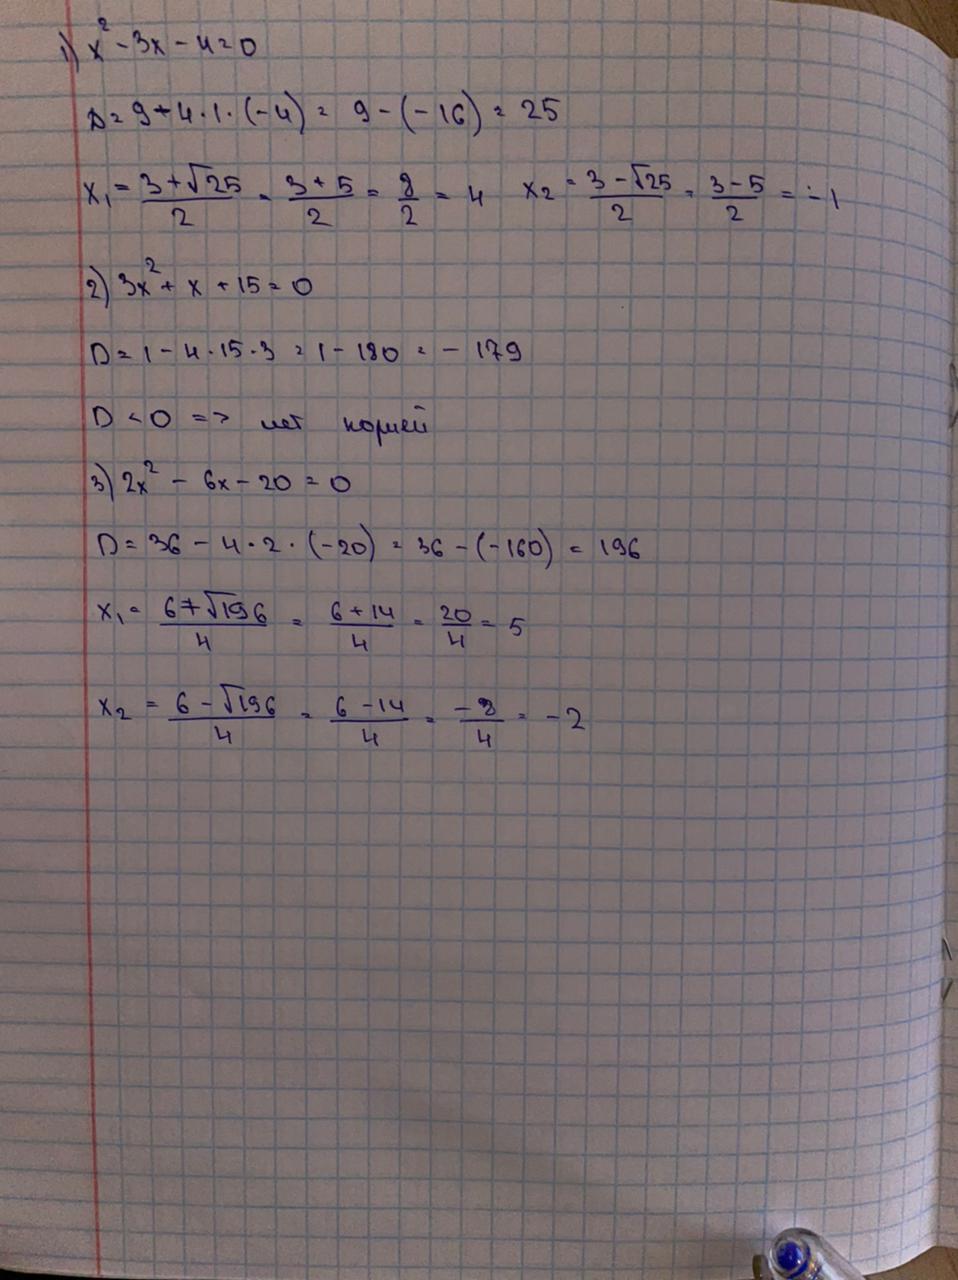 1) x² - 3x - 4 = 0
D = 9 + 4 · 1 · (-4) = 9 - (-16) = 25
x₁ = (3 + √25)/2 = (3 + 5)/2 = 8/2 = 4 x₂ = (3 - √25)/2 = (3 - 5)/2 = -1
2) 3x² + x + 15 = 0
D = 1 - 4 · 15 · 3 = 1 - 180 = - 179
D < 0 => нет корней
3) 2x² - 6x - 20 = 0
D = 36 - 4 · 2 · (-20) = 36 - (-160) = 196
x₁ = (6 + √196)/4 = (6 + 14)/4 = 20/4 = 5
x₂ = (6 - √196)/4 = (6 - 14)/4 = -8/4 = -2